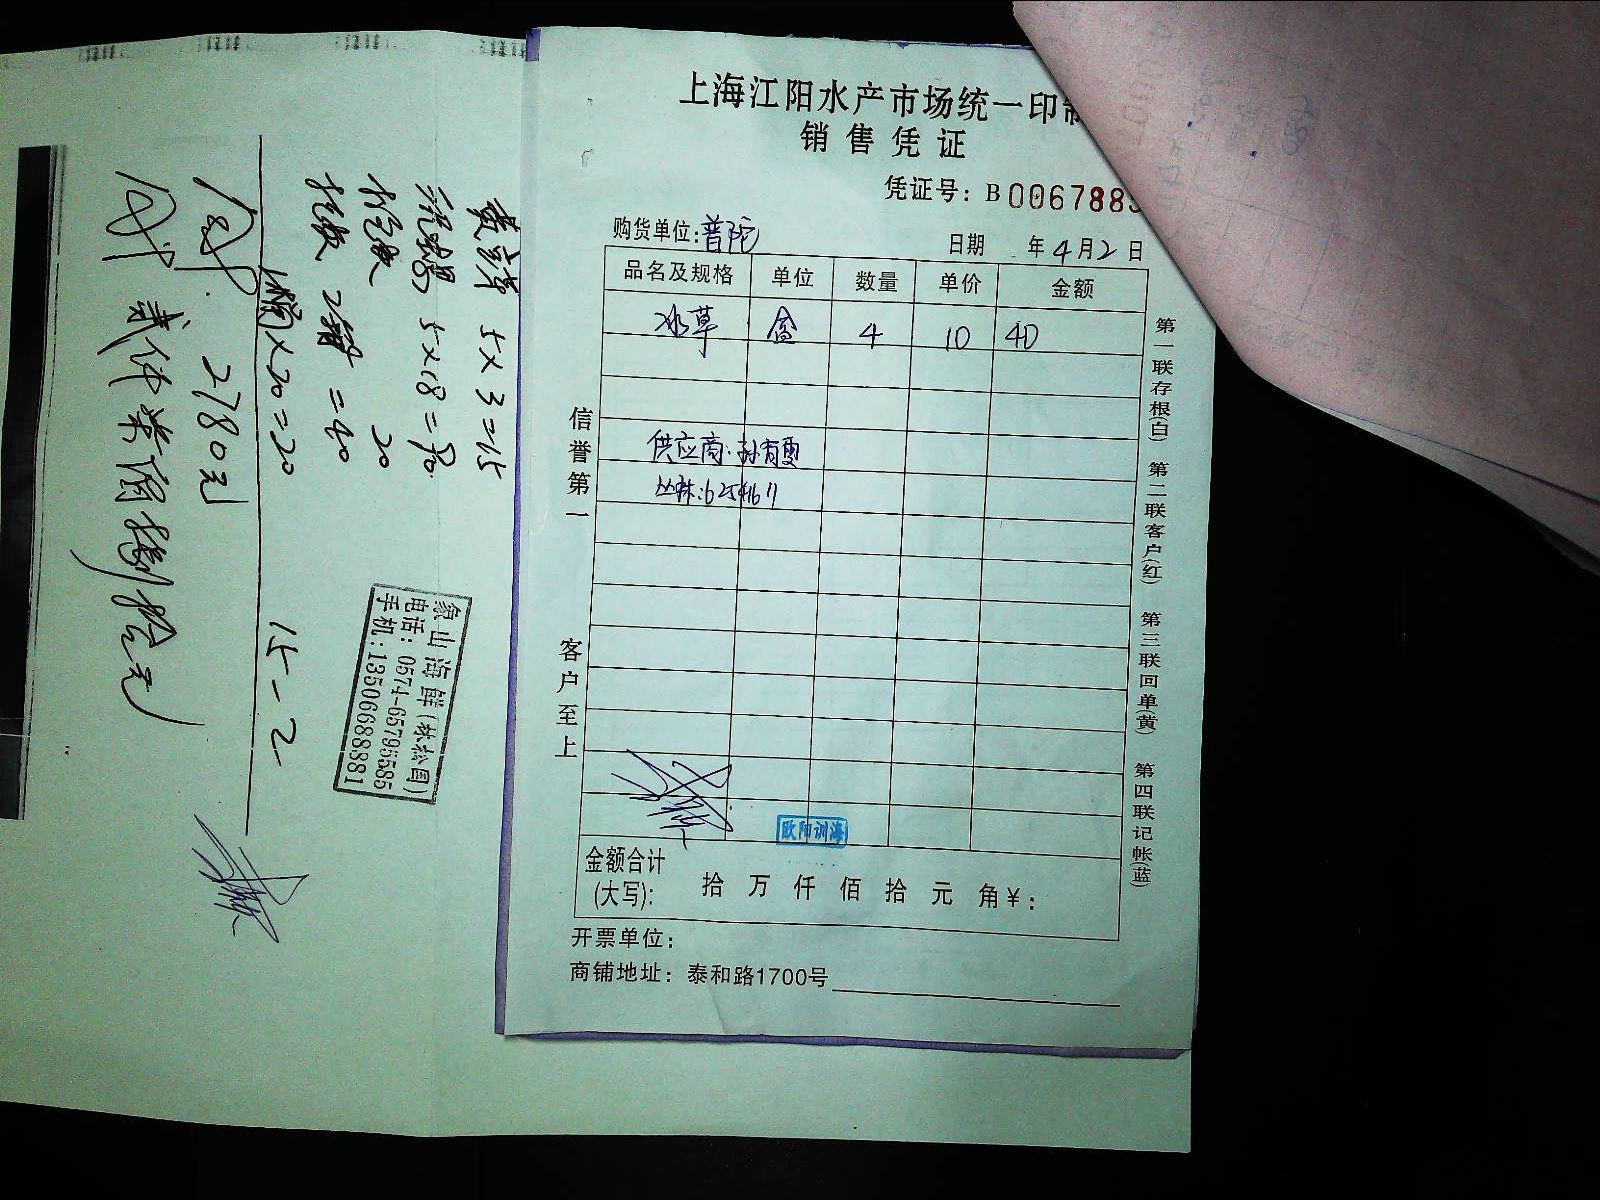 上海江阳水产市场统一印
销售凭证
凭证号：B 006788
购货单位：普陀
日期 年 4 月 2 日
品名及规格 单位 数量 单价 金额
冰草 盒 4 10 40
供应商：孙育
625461
信誉第一
客户至上
第一联存根(白) 第二联客户(红) 第三联回单(黄) 第四联记帐(蓝)
欧阳训海
金额合计
(大写)： 拾 万 仟 佰 拾 元 角 ¥：
开票单位：
商铺地址：泰和路1700号
5×3=15
5×18=90
20
=40
×20=20
15-2
2780元
贰仟柒佰捌拾元
象山海鲜
电话：0574-65795585
手机：13506688881